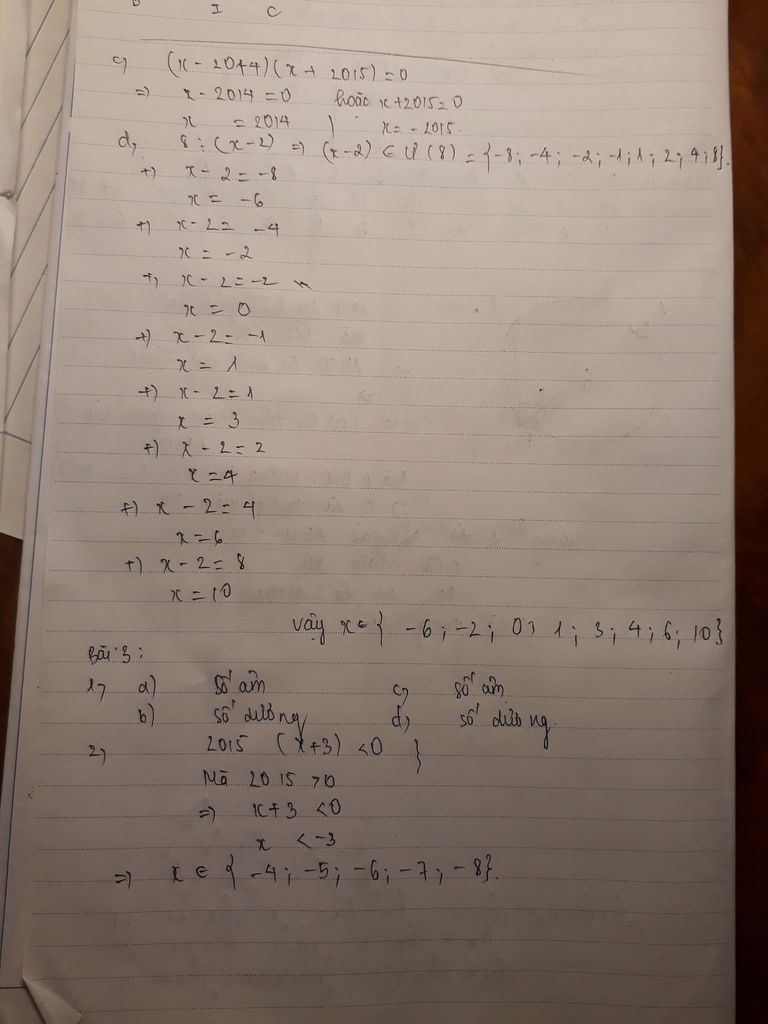 I C
c) (x - 2014)(x + 2015) = 0
=> x - 2014 = 0 hoặc x + 2015 = 0
x = 2014 } x = - 2015.
d, 8 ⋮ (x - 2) => (x - 2) ∈ Ư (8) = {-8; -4; -2; -1; 1; 2; 4; 8}.
+) x - 2 = -8
x = -6
+) x - 2 = -4
x = -2
+) x - 2 = -2
x = 0
+) x - 2 = -1
x = 1
+) x - 2 = 1
x = 3
+) x - 2 = 2
x = 4
+) x - 2 = 4
x = 6
+) x - 2 = 8
x = 10
vậy x ∈ { -6 ; -2 ; 0 ; 1 ; 3 ; 4 ; 6 ; 10}
Bài 3 :
1, a) số âm c, số âm
b) số dương d, số dương.
2, 2015 (x + 3) < 0 }
Mà 2015 > 0
=> x + 3 < 0
x < -3
=> x ∈ { -4 ; -5 ; -6 ; -7 ; -8}.